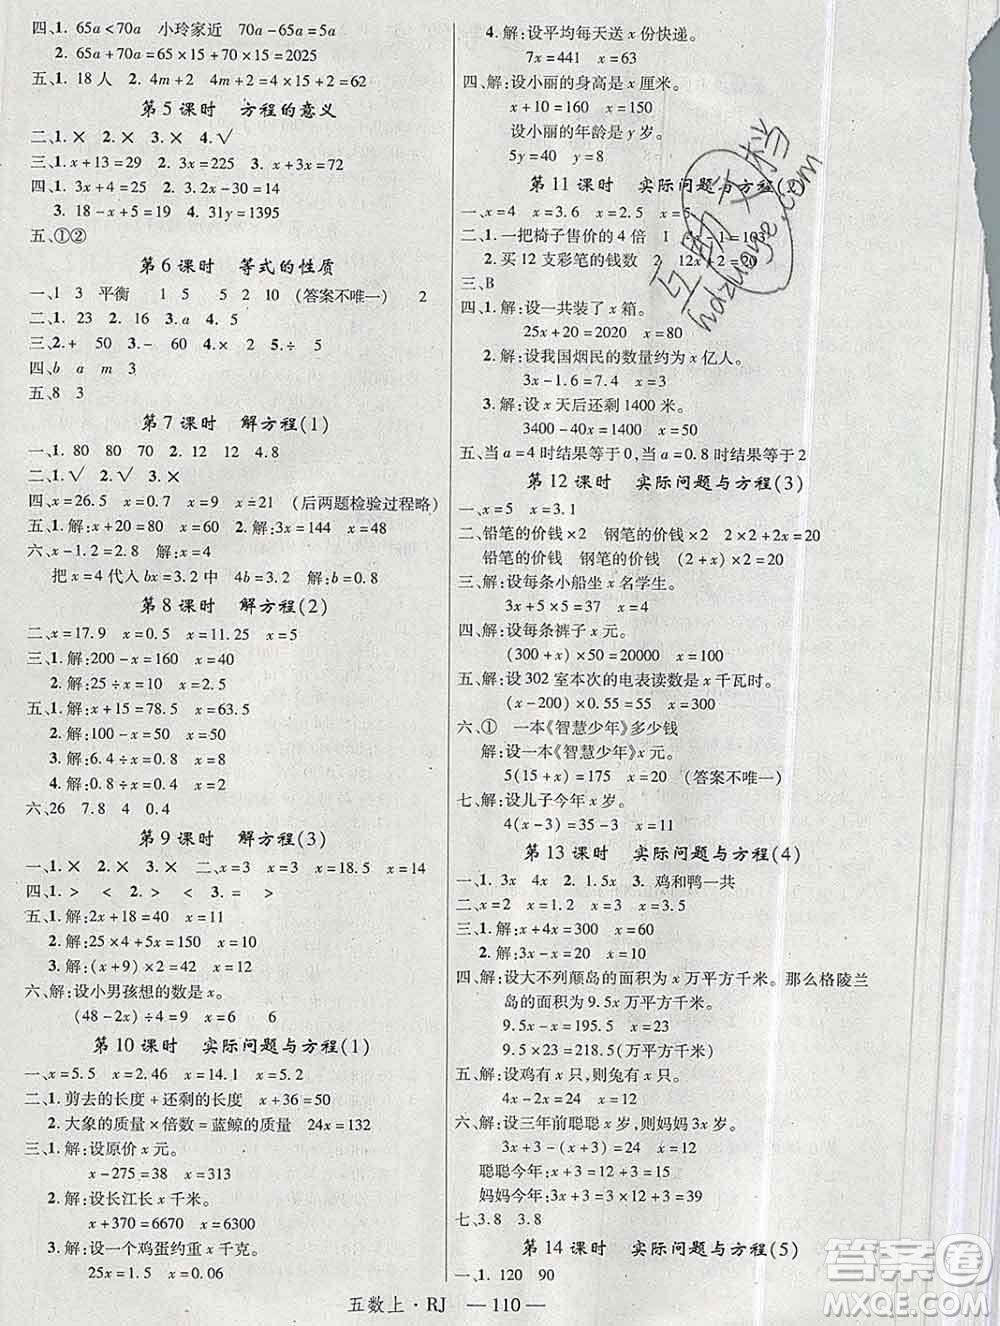 四、1. 65a<70a 小玲家近 70a-65a=5a
2. 65a+70a=65×15+70×15=2025
五、1. 18人 2. 4m+2 4m+2=4×15+2=62
第5课时 方程的意义
二、1. × 2. × 3. × 4. √
三、1. x+13=29 2. 3x=225 3. x+3x=72
四、1. 3x+4=25 2. 2x-30=14
3. 18-x+5=15 4. 31y=1395
五、①②
第6课时 等式的性质
一、1 3 平衡 1 5 5 2 10 (答案不唯一) 2
二、1. 23 2. 16 3. 22 4. 8
三、2. + 50 3. - 60 4. × 6 5. ÷ 5
四、b a m 3
五、8 3
第7课时 解方程(1)
一、1. 80 80 70 2. 12 12 4.8
二、1. √ 2. √ 3. ×
四、x=26.5 x=0.7 x=9 x=21 (后两题检验过程略)
五、1. 解:x+20=80 x=60 2. 解:3x=144 x=48
六、x-1.2=2.8 解:x=4
把x=4代入bx=3.2中 4b=3.2 解:b=0.8
第8课时 解方程(2)
二、x=17.9 x=0.5 x=11.25 x=5
三、1. 解:200-x=160 x=40
2. 解:25÷x=10 x=2.5
五、1. 解:x+15=78.5 x=63.5
2. 解:100-x=50 x=50
3. 解:6.4÷x=0.8 x=8
4. 解:0.8÷x=0.4 x=2
六、26 7.8 4 0.4
第9课时 解方程(3)
一、1. × 2. × 3. × 二、x=3 x=3 x=18.5 x=14
四、1. > < 2. > < 3. = >
五、1. 解:2x+18=40 x=11
2. 解:25×4+5x=150 x=10
3. 解:(x+9)×2=42 x=12
六、解:设小男孩想的数是x。
(48-2x)÷4=9 x=6 6
第10课时 实际问题与方程(1)
一、x=5.5 x=2.46 x=14 x=5.2
二、1. 剪去的长度+还剩的长度 x+36=50
2. 大象的质量×倍数=蓝鲸的质量 24x=132
三、1. 解:设原价x元。
x-275=38 x=313
2. 解:设长江长x千米。
x+370=6670 x=6300
3. 解:设一个鸡蛋约重x千克。
25x=1.5 x=0.06
4. 解:设平均每天送x份快递。
7x=441 x=63
四、解:设小丽的身高是x厘米。
x+10=160 x=150
设小丽的年龄是y岁。
5y=40 y=8
第11课时 实际问题与方程(2)
一、x=4 x=3.6 x=2.5 x=5
二、1. 一把椅子售价的4倍 1
2. 买12支彩笔的钱数 2 12x+2=20
三、B
四、1. 解:设一共装了x箱。
25x+20=2020 x=80
2. 解:设我国烟民的数量约为x亿人。
3x-1.6=7.4 x=3
3. 解:设x天后还剩1400米。
3400-40x=1400 x=50
五、当a=4时结果等于0,当a=0.8时结果等于2
第12课时 实际问题与方程(3)
一、x=5 x=3.1
二、铅笔的价钱×2 钢笔的价钱×2 2×2+2x=20
铅笔的价钱 钢笔的价钱 (2+x)×2=20
三、解:设每条小船坐x名学生。
3x+5×6=45 x=5
四、解:设每条裤子x元。
(300+x)×50=20000 x=100
五、解:设302室本次的电表读数是x千瓦时。
(x-200)×0.55=55 x=300
六、① 一本《智慧少年》多少钱
解:设一本《智慧少年》x元。
5(15+x)=175 x=20 (答案不唯一)
七、解:设儿子今年x岁。
4(x-3)=35-3 x=11
第13课时 实际问题与方程(4)
一、1. 3x 4x 2. 1.5x 3. 鸡和鸭一共
二、x=2 x=5 x=3 x=3.5
三、1. 解:x+4x=300 x=60
2. 解:3x-x=20 x=10
四、解:设大不列颠岛的面积为x万平方千米。那么格陵兰
岛的面积为9.5x万平方千米。
9.5x-x=195.5 x=23
9.5x=9.5×23=218.5(万平方千米)
五、解:设鸡有x只,则兔有x只。
4x-2x=24 x=12
六、解:设三年前聪聪x岁,则妈妈3x岁。
3x+3-(x+3)=24 x=12
聪聪今年:x+3=12+3=15
妈妈今年:3x+3=3×12+3=39
七、3.8 3.8
第14课时 实际问题与方程(5)
一、1. 120 90
五数上·RJ —110—
互助文档
hdzuoye.com
答案圈
MXQE.COM